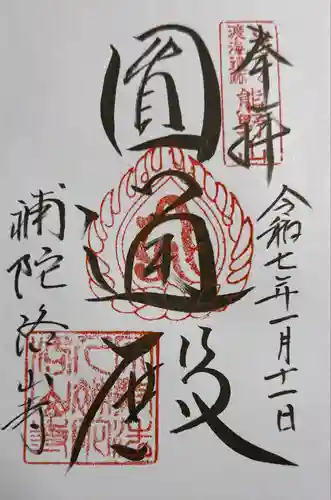 奉拝
渡海道場 能野
令和七年一月十一日
圓通殿
補陀洛山寺